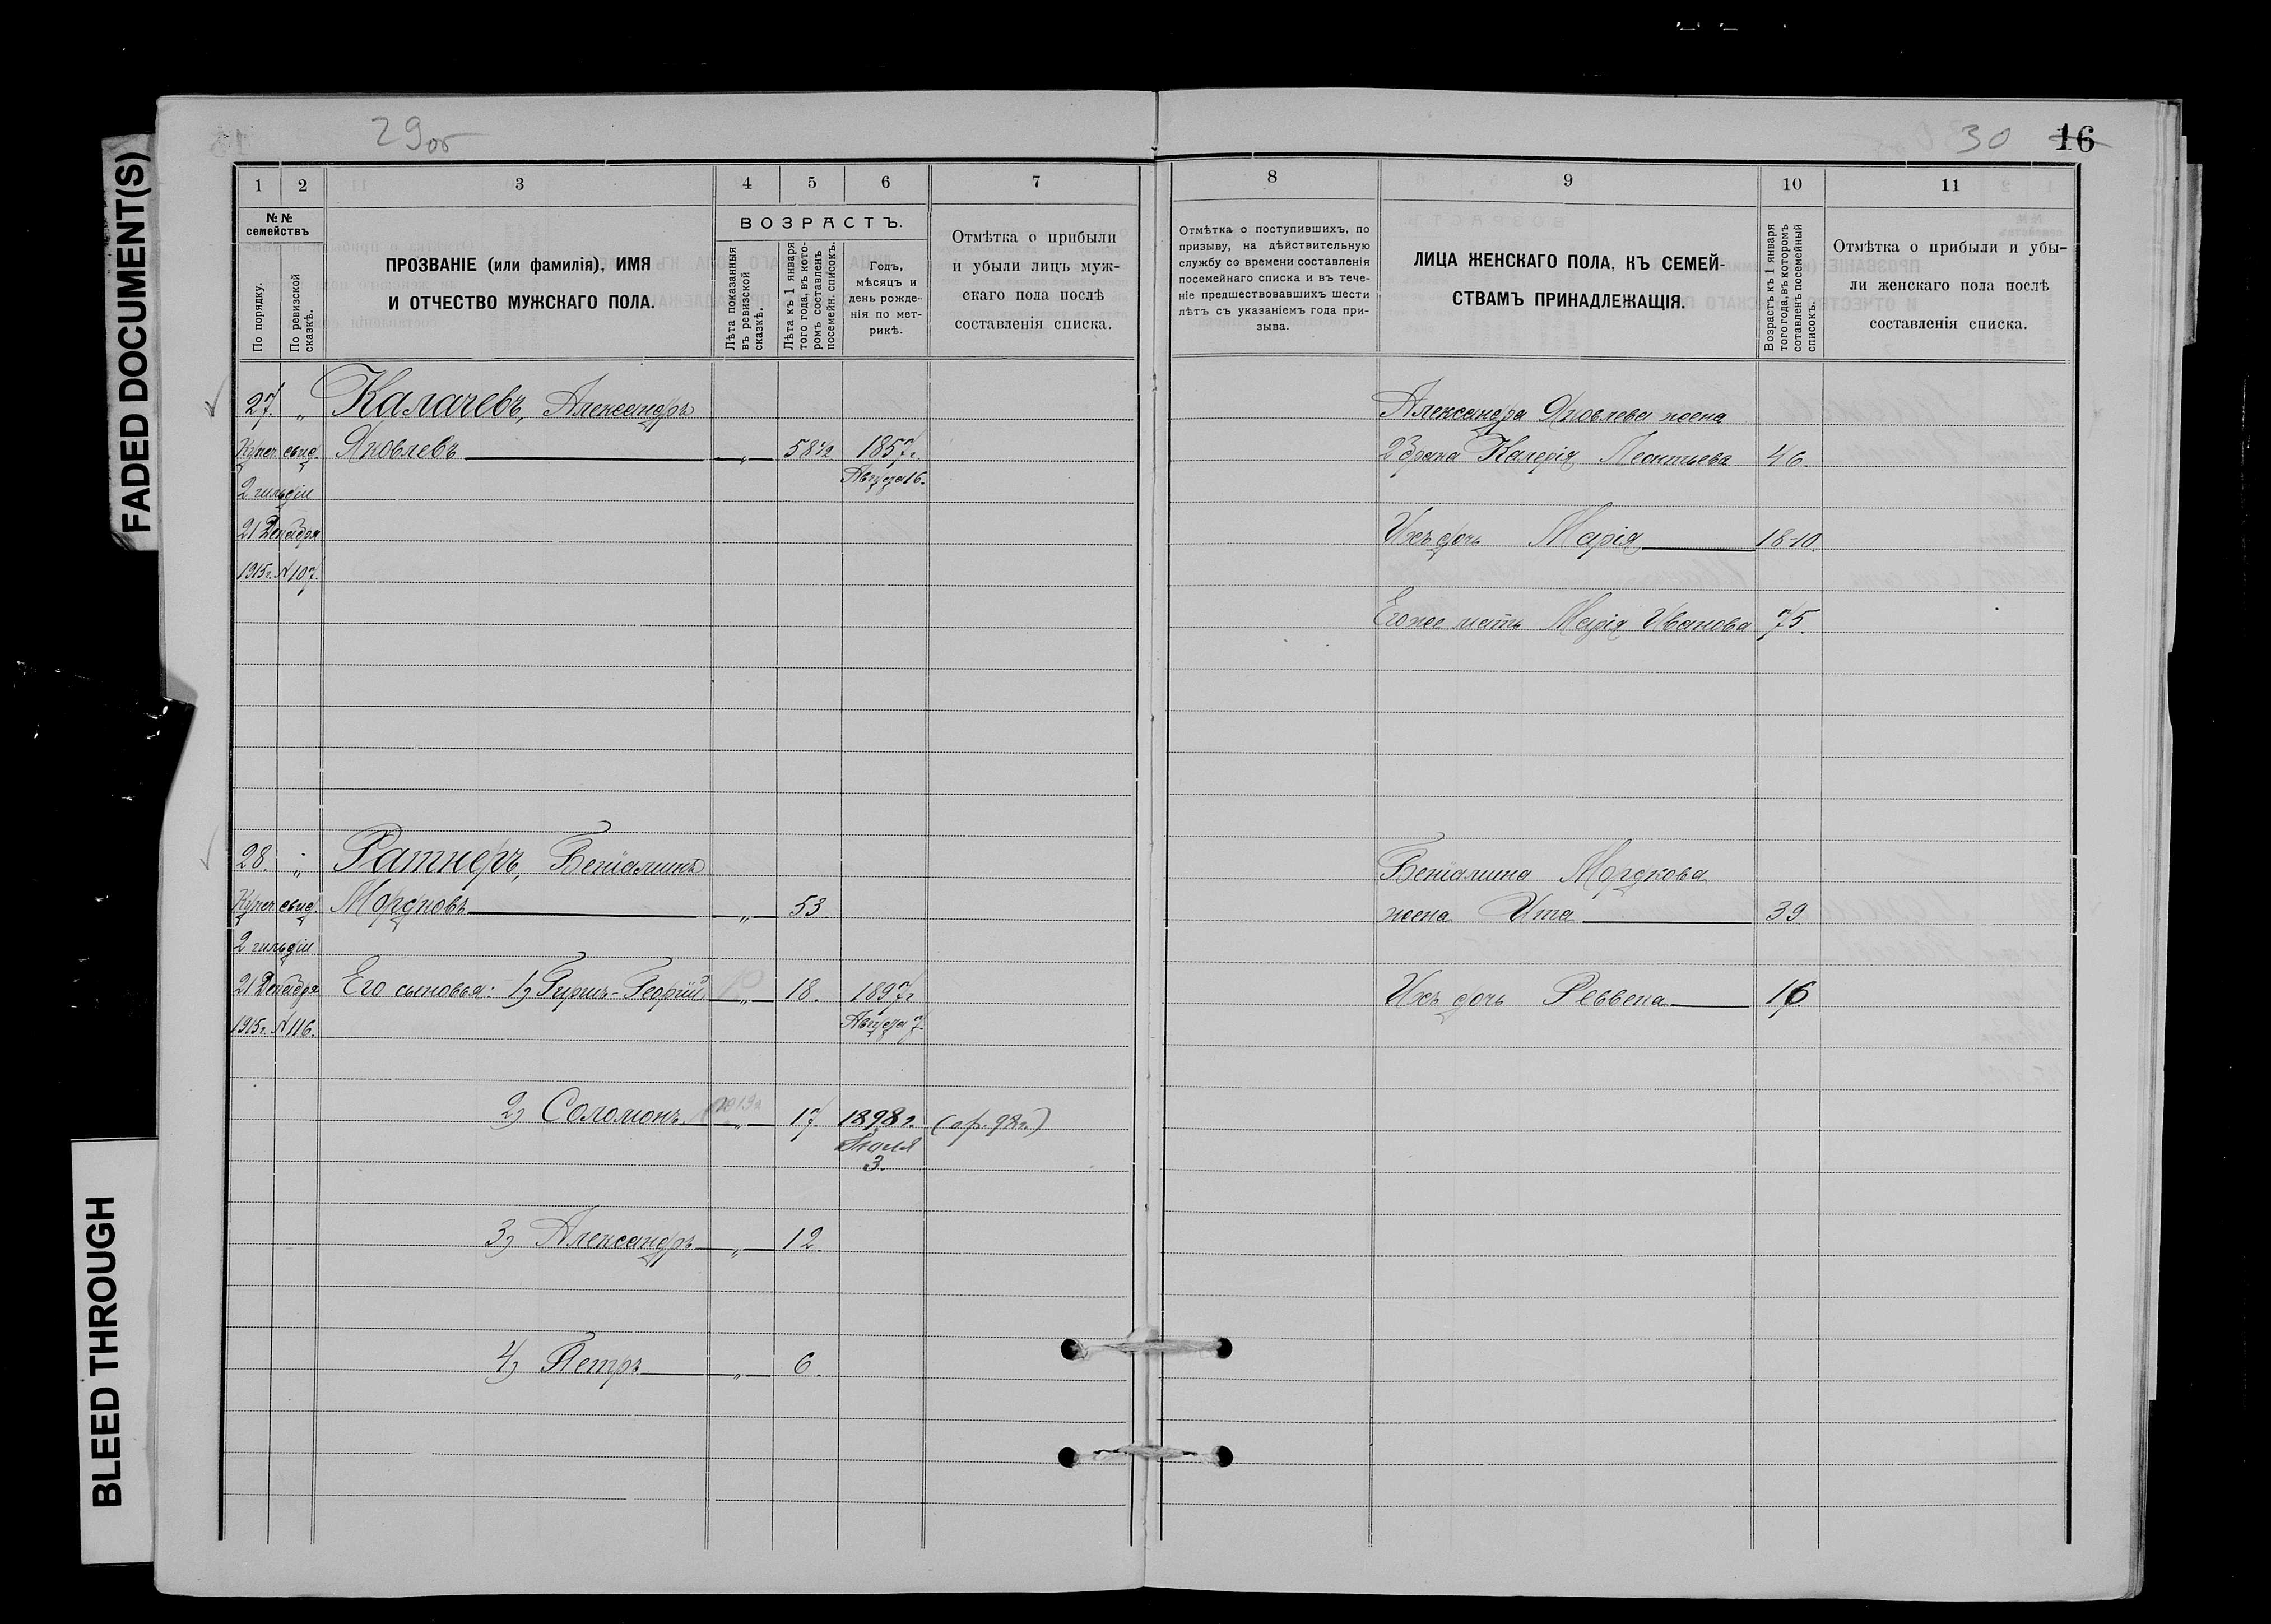 FADED DOCUMENT(S)
BLEED THROUGH
29об
1 2 3 4 5 6 7
№№ семействъ
По порядку.
По ревизской сказкѣ.
ПРОЗВАНІЕ (или фамилія), ИМЯ
И ОТЧЕСТВО МУЖСКАГО ПОЛА.
ВОЗРАСТЪ.
Лѣта показанныя въ ревизской сказкѣ.
Лѣта къ 1 января того года, въ кото-ромъ составленъ посемейн. списокъ.
Годъ,
мѣсяцъ и
день рожде-
нія по мет-
рикѣ.
Отмѣтка о прибыли
и убыли лицъ муж-
скаго пола послѣ
составленія списка.
27. „ Калачевъ, Александръ
Купеч. свид. Яковлевъ „ 58½ 1857г.
2 гильдіи Августа 16.
21 Декабря
1915г. №107.
28. „ Ратнеръ, Беніаминъ
Купеч. свид. Мордковъ „ 53.
2 гильдіи
21 Декабря Его сыновья: 1) Гиршъ-Георгій „ 18. 1897г.
1915г. №116. Августа 7.
2) Соломонъ 1919г. „ 17 1898г. (ср. 98г.)
Іюля
3.
3) Александръ „ 12.
4) Петръ „ 6.
30 16
8 9 10 11
Отмѣтка о поступившихъ, по
призыву, на дѣйствительную
службу со времени составленія
посемейнаго списка и въ тече-
ніе предшествовавшихъ шести
лѣтъ съ указаніемъ года при-
зыва.
ЛИЦА ЖЕНСКАГО ПОЛА, КЪ СЕМЕЙ-
СТВАМЪ ПРИНАДЛЕЖАЩІЯ.
Возрастъ къ 1 января
того года, въ которомъ
сотавленъ посемейный
списокъ.
Отмѣтка о прибыли и убы-
ли женскаго пола послѣ
составленія списка.
Александра Яковлева жена
2 брака Калерія Леонтьева 46.
Ихъ дочь Марія 18-10.
Его же мать Марія Иванова 75.
Беніамина Мордкова
жена Ита 39.
Ихъ дочь Реввека 16